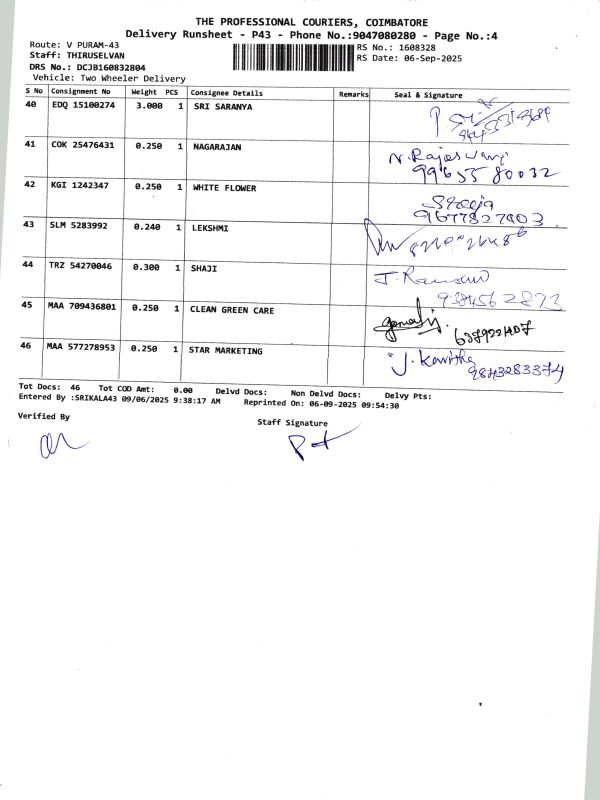 THE PROFESSIONAL COURIERS, COIMBATORE
Delivery Runsheet - P43 - Phone No.:9047080280 - Page No.:4
Route: V PURAM-43
RS No.: 1608328
Staff: THIRUSELVAN
RS Date: 06-Sep-2025
DRS No.: DCJB160832804
Vehicle: Two Wheeler Delivery
S No Consignment No Weight PCS Consignee Details Remarks Seal & Signature
40 EDQ 15100274 3.000 1 SRI SARANYA
41 COK 25476431 0.250 1 NAGARAJAN N. Rajeswari
9965580032
42 KGI 1242347 0.250 1 WHITE FLOWER Sreeja
9677827903
43 SLM 5283992 0.240 1 LEKSHMI
44 TRZ 54270046 0.300 1 SHAJI
9384562873
45 MAA 709436801 0.250 1 CLEAN GREEN CARE
46 MAA 577278953 0.250 1 STAR MARKETING J. Kavitha
9843283374
Tot Docs: 46 Tot COD Amt: 0.00 Delvd Docs: Non Delvd Docs: Delvy Pts:
Entered By :SRIKALA43 09/06/2025 9:38:17 AM Reprinted On: 06-09-2025 09:54:30
Verified By
Staff Signature